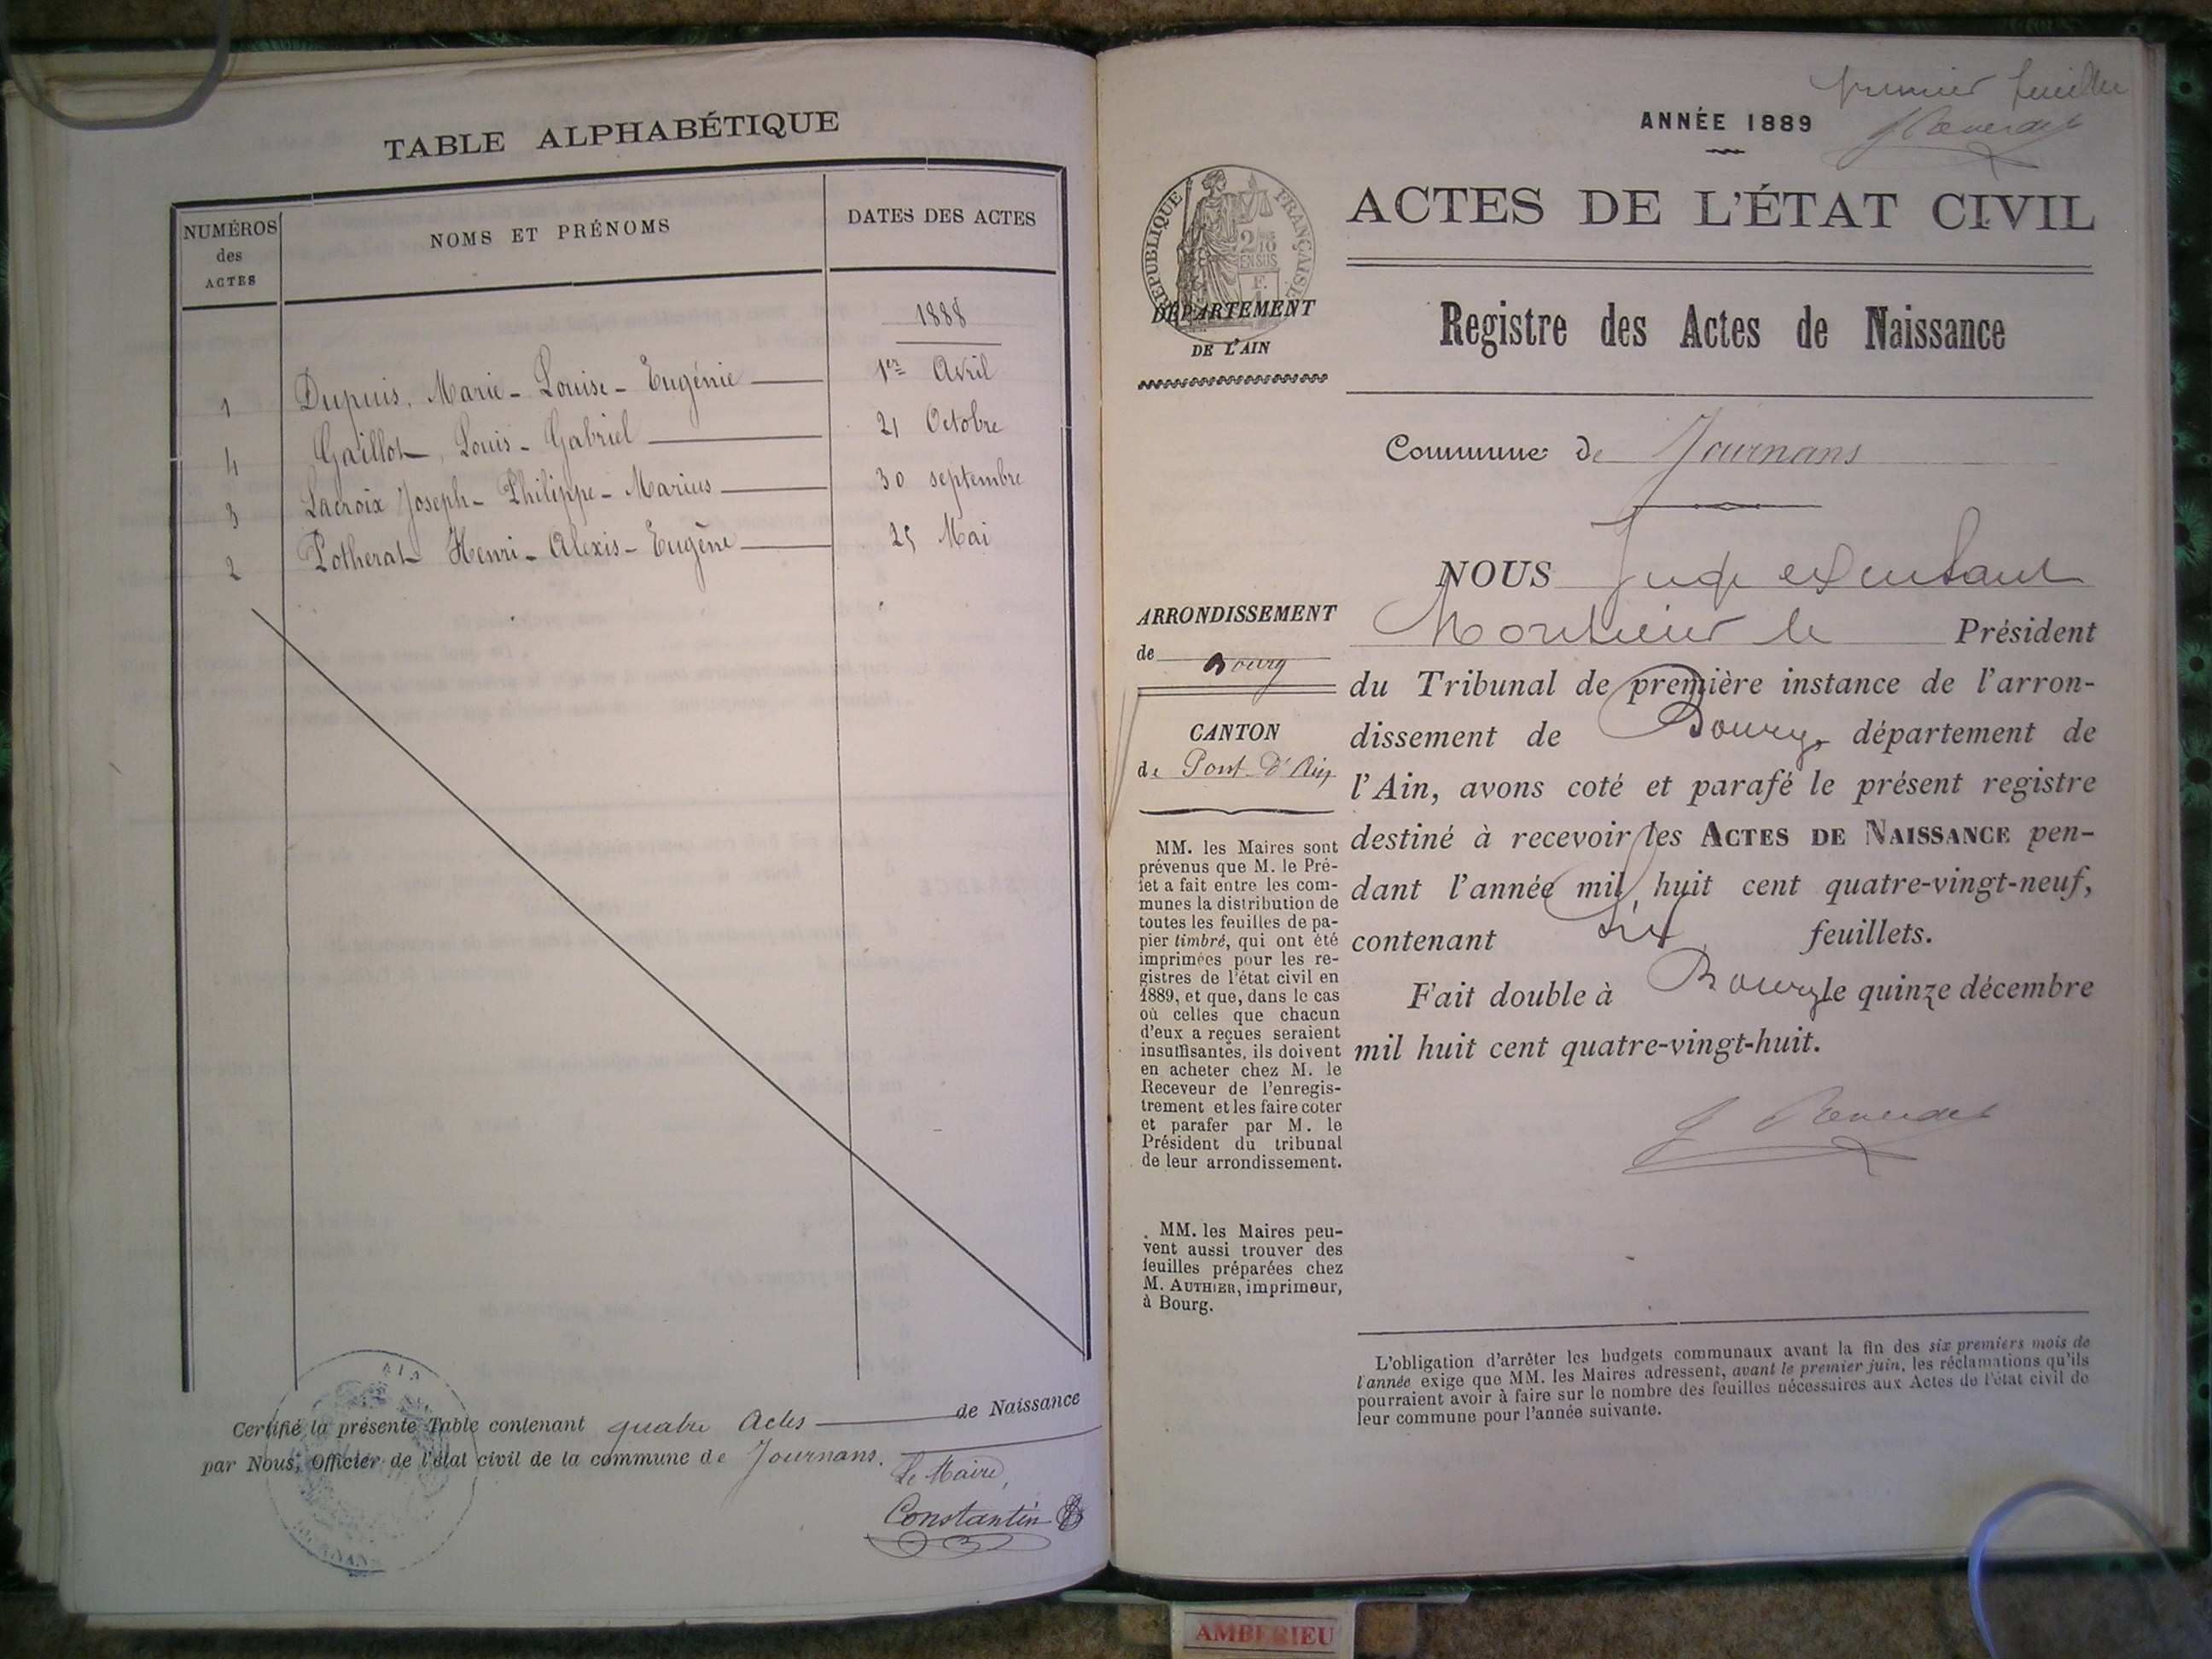 TABLE ALPHABÉTIQUE
NUMÉROS des ACTES
NOMS ET PRÉNOMS
DATES DES ACTES
1888
1 Dupuis, Marie - Louise - Eugénie 1er Avril
4 Gaillot, Louis - Gabriel 21 Octobre
3 Lacroix Joseph - Philippe - Marius 30 septembre
2 Potherat Henri - Alexis - Eugène 25 Mai
Certifié la présente Table contenant quatre Actes de Naissance
par Nous, Officier de l'état civil de la commune de Journans.
Le Maire,
Constantin
AIN
premier feuillet
ANNÉE 1889
RÉPUBLIQUE FRANÇAISE
2/10
EN SUS
ACTES DE L'ÉTAT CIVIL
DÉPARTEMENT
DE L'AIN
Registre des Actes de Naissance
Commune de Journans
ARRONDISSEMENT
de Bourg
CANTON
de Pont-d'Ain
MM. les Maires sont
prévenus que M. le Pré-
fet a fait entre les com-
munes la distribution de
toutes les feuilles de pa-
pier timbré, qui ont été
imprimées pour les re-
gistres de l'état civil en
1889, et que, dans le cas
où celles que chacun
d'eux a reçues seraient
insuffisantes, ils doivent
en acheter chez M. le
Receveur de l'enregis-
trement et les faire coter
et parafer par M. le
Président du tribunal
de leur arrondissement.
MM. les Maires peu-
vent aussi trouver des
feuilles préparées chez
M. AUTHIER, imprimeur,
à Bourg.
NOUS Juge
Monsieur le Président
du Tribunal de première instance de l'arron-
dissement de Bourg, département de
l'Ain, avons coté et parafé le présent registre
destiné à recevoir les ACTES DE NAISSANCE pen-
dant l'année mil huit cent quatre-vingt-neuf,
contenant six feuillets.
Fait double à Bourg le quinze décembre
mil huit cent quatre-vingt-huit.
L'obligation d'arrêter les budgets communaux avant la fin des six premiers mois de
l'année exige que MM. les Maires adressent, avant le premier juin, les réclamations qu'ils
pourraient avoir à faire sur le nombre des feuilles nécessaires aux Actes de l'état civil de
leur commune pour l'année suivante.
AMBERIEU